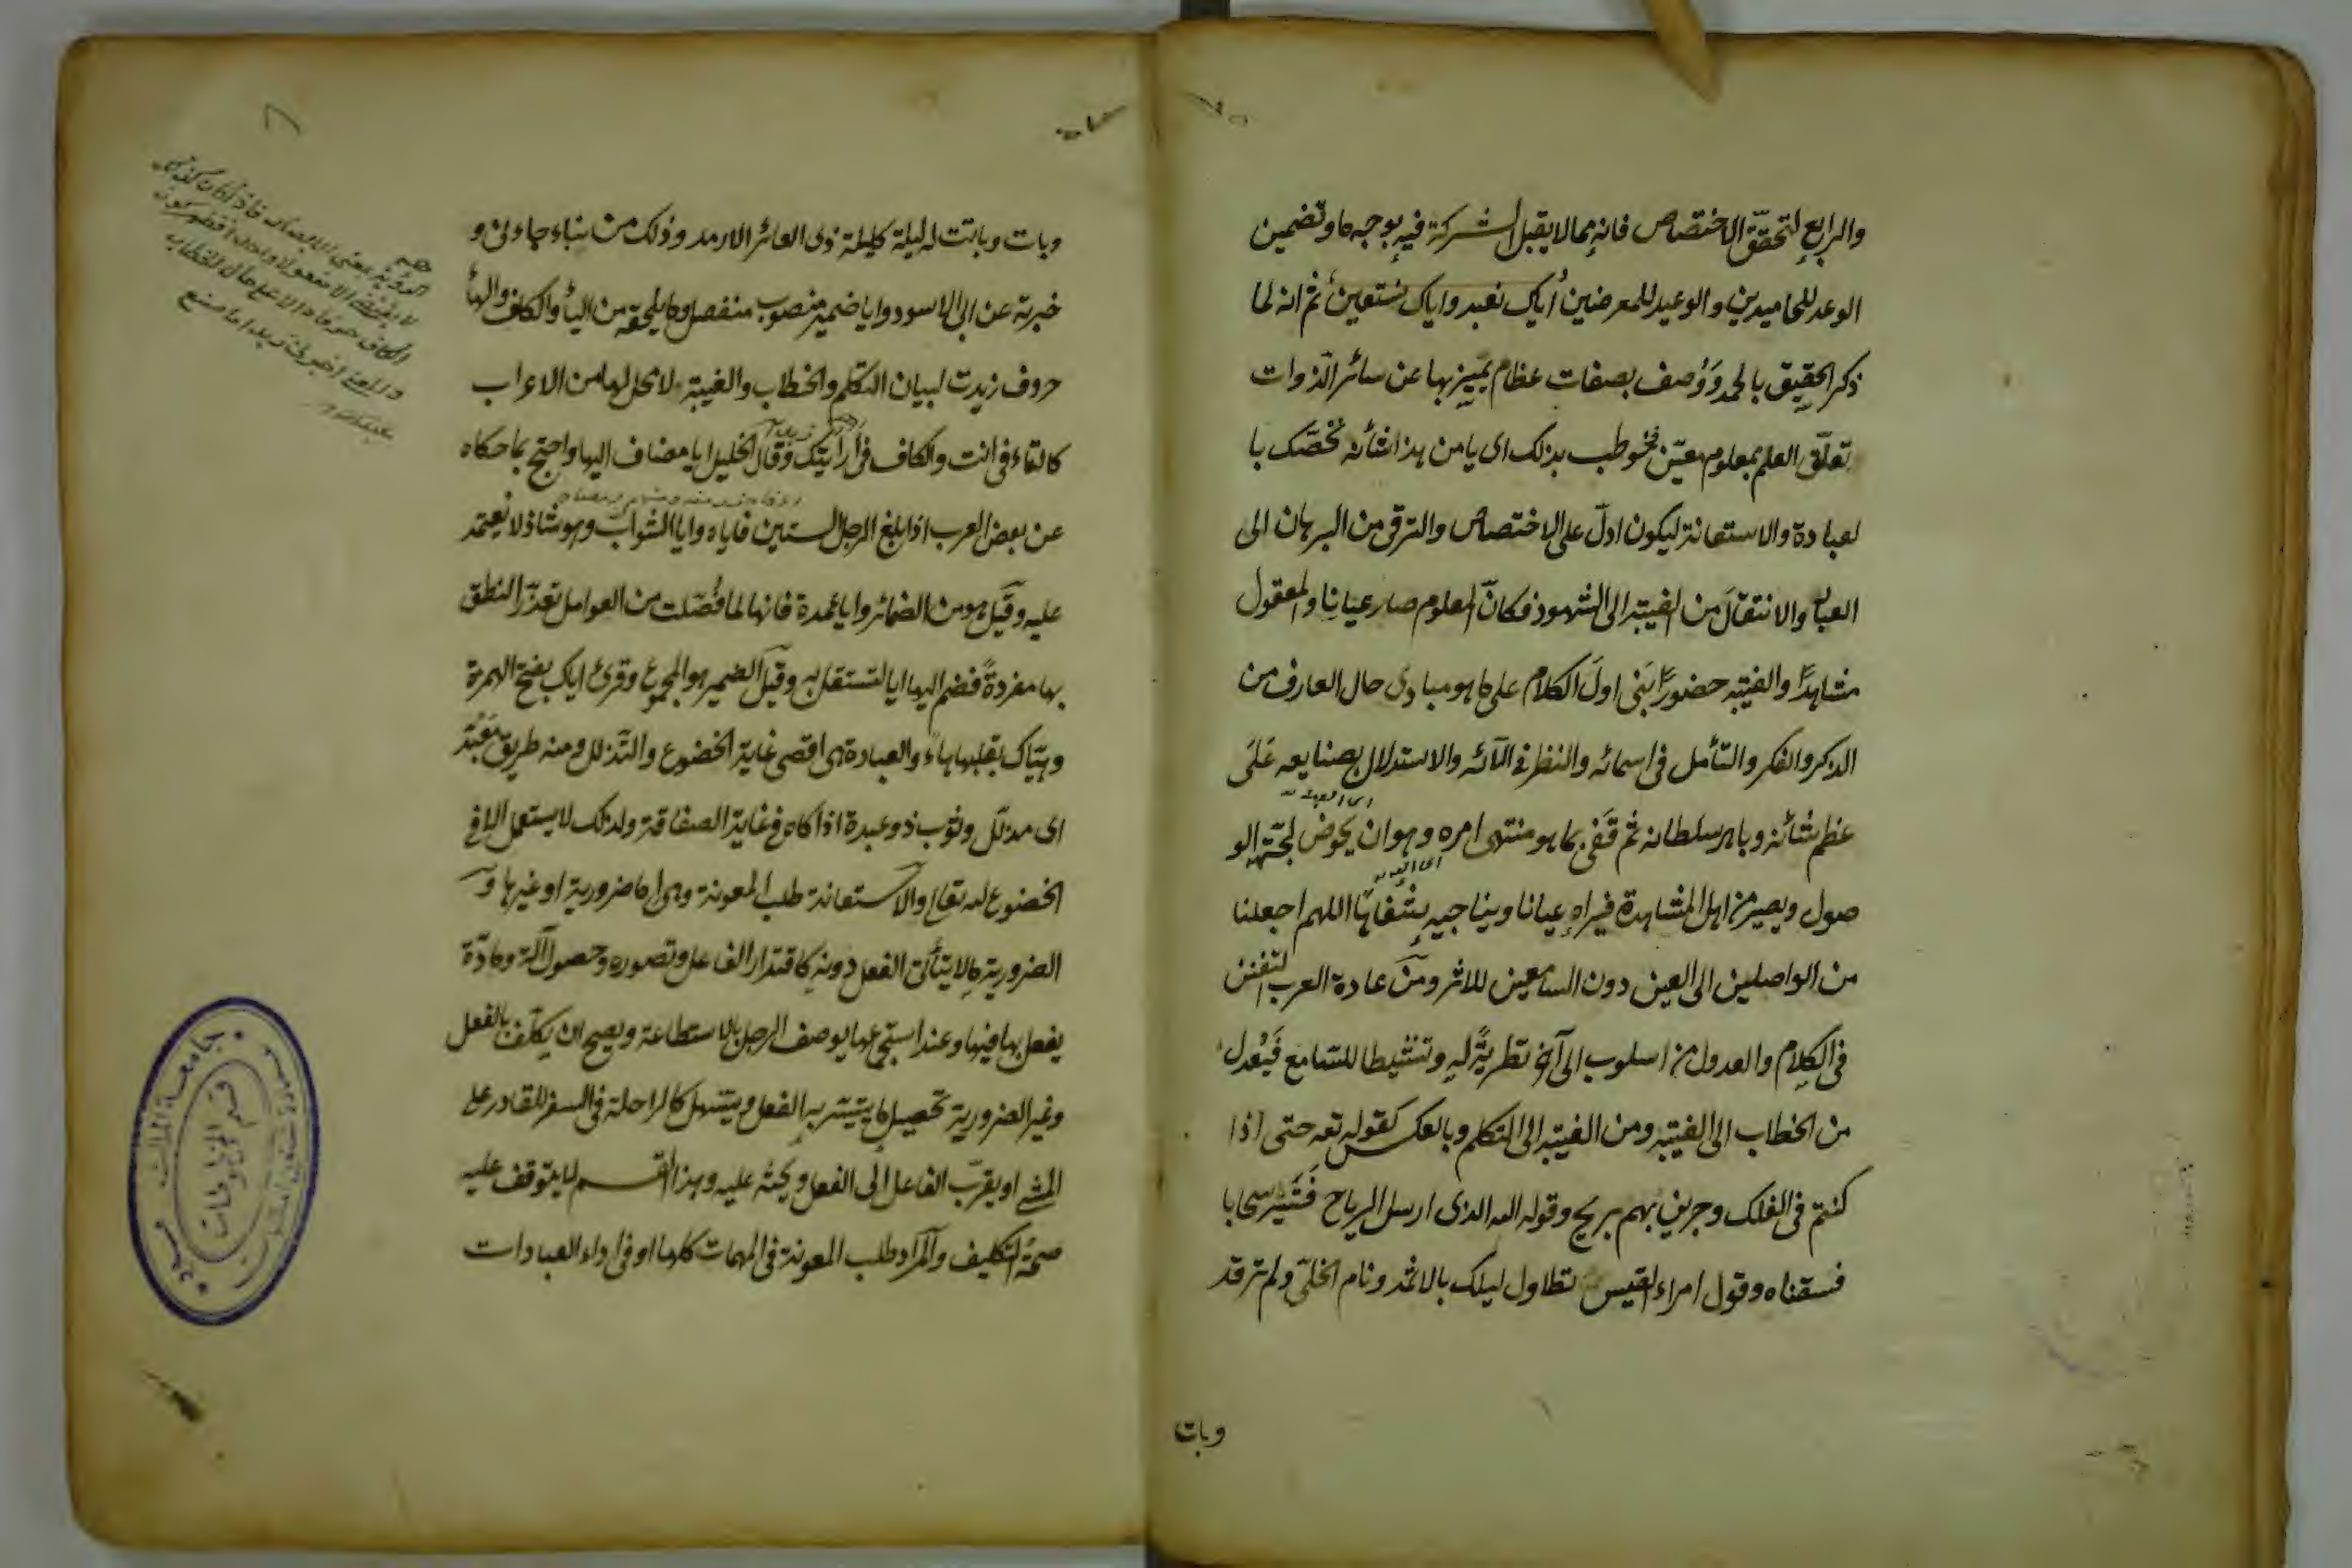 والرابع لتحقق الاختصاص فانه مما لا يقبل الشركة فيه بوجه ما وتضمين
الوعد للحامدين والوعيد للمعرضين اياك نعبد واياك نستعين ثم انه لما
ذكر الحقيق بالحمد ووصف بصفات عظام تميز بها عن سائر الذوات
تعلق العلم بمعلوم معين فخوطب بذلك اى يا من هذا شأنه نخصك با
لعبادة والاستعانة ليكون ادل على الاختصاص والترقى من البرهان الى
العيان والانتقال من الغيبة الى الشهود فكان المعلوم صار عيانا والمعقول
مشاهدا والغيبة حضورا بنى اول الكلام على ما هو مبادى حال العارف من
الذكر والفكر والتأمل فى اسمائه والنظر فى آلائه والاستدلال بصنايعه على
عظم شأنه وباهر سلطانه ثم قفى بما هو منتهى امره وهو ان يخوض لجة الو
صول ويصير من اهل المشاهدة فيراه عيانا ويناجيه شفاها اللهم اجعلنا
من الواصلين الى العين دون السامعين للاثر ومن عادة العرب التفنن
فى الكلام والعدول من اسلوب الى آخر تطرية له وتنشيطا للسامع فيعدل
من الخطاب الى الغيبة ومن الغيبة الى التكلم وبالعكس كقوله تعه حتى اذا
كنتم فى الفلك وجرين بهم بريح وقوله الله الذى ارسل الرياح فتثير سحابا
فسقناه وقول امراء القيس تطاول ليلك بالاثمد ونام الخلى ولم ترقد
وبات
وبات وباتت له ليلة كليلة ذى العائر الارمد وذلك من نباء جاءنى و
خبرته عن ابى الاسود وايا ضمير منصوب منفصل وما يلحقه من اليأ والكاف والهأ
حروف زيدت لبيان التكلم والخطاب والغيبة لا محل لها من الاعراب
كالتاء فى انت والكاف فى أرأيتك وقال الخليل ايا مضاف اليها واحتج بما حكاه
عن بعض العرب اذا بلغ الرجل الستين فاياه وايا الشواب وهو شاذ لا يعتمد
عليه وقيل هو من الضمائر وايا عمدة فانها لما فصلت من العوامل تعذر النطق
بها مفردة فضم اليها ايا لتستقل به وقيل الضمير هو المجموع وقرئ اياك بفتح الهمزة
وهياك بقلبها هاء والعبادة هى اقصى غاية الخضوع والتذلل ومنه طريق معبد
اى مذلل وثوب ذو عبدة اذا كان فى غاية الصفاقة ولذلك لا يستعمل الا فى
الخضوع لله تعالى والاستعانة طلب المعونة وهى اما ضرورية او غيرها و
الضرورية ما لا يتأتى الفعل دونه كاقتدار الفاعل وتصوره وحصول آلة ومادة
يفعل بها فيها وعند استجماعها يوصف الرجل بالاستطاعة ويصح ان يكلف بالفعل
وغير الضرورية تحصيل ما يتيسر به الفعل ويتسهل كالراحلة فى السفر للقادر على
المشى او يقرب الفاعل الى الفعل ويحثه عليه وهذا القسم لا يتوقف عليه
صحة التكليف والمراد طلب المعونة فى المهمات كلها او فى اداء العبادات